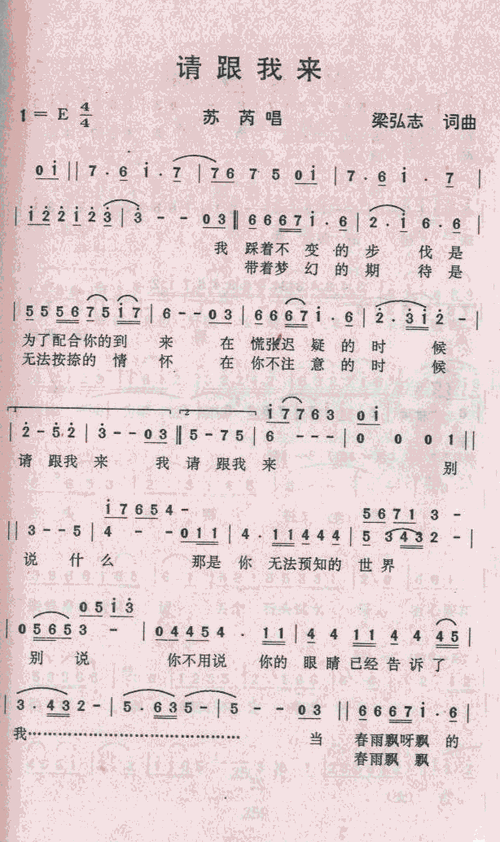 请跟我来
1 = E 4/4 苏芮唱 梁弘志 词曲
0 i || 7 · 6 i · 7 | 7 6 7 5 0 i | 7 · 6 i · 7 |
i 2 2 i 2 3 | 3 - - 0 3 || 6 6 6 7 i · 6 | 2 · i 6 · 6 |
我 踩着不 变 的 步 伐 是
带着梦 幻 的 期 待 是
5 5 5 6 7 5 i 7 | 6 - - 0 3 | 6 6 6 7 i · 6 | 2 · 3 i 2 - |
为了配合你的到 来 在 慌张迟 疑 的 时 候
无法按捺的 情 怀 在 你不注 意 的 时 候
1 2
i 7 7 6 3 0 i
| 2 - 5 2 | 3 - - 0 3 || 5 - 7 5 | 6 - - - | 0 0 0 0 1 ||
请 跟我 来 我 请 跟我 来 别
i 7 6 5 4 - 5 6 7 1 3 -
|| 3 - - 5 | 4 - - 0 1 1 | 4 · 1 1 4 4 4 | 5 3 4 3 2 - |
说 什 么 那是 你 无法预知的 世 界
0 5 i 3
| 0 5 6 5 3 - | 0 4 4 4 5 4 · 1 1 | 4 4 1 1 4 4 4 5 |
别 说 你不用说 你的 眼 睛已经告诉了
| 3 · 4 3 2 - | 5 · 6 3 5 - | 5 - - 0 3 || 6 6 6 7 i · 6 |
我…………………………… 当 春雨飘呀飘 的
春雨飘 飘